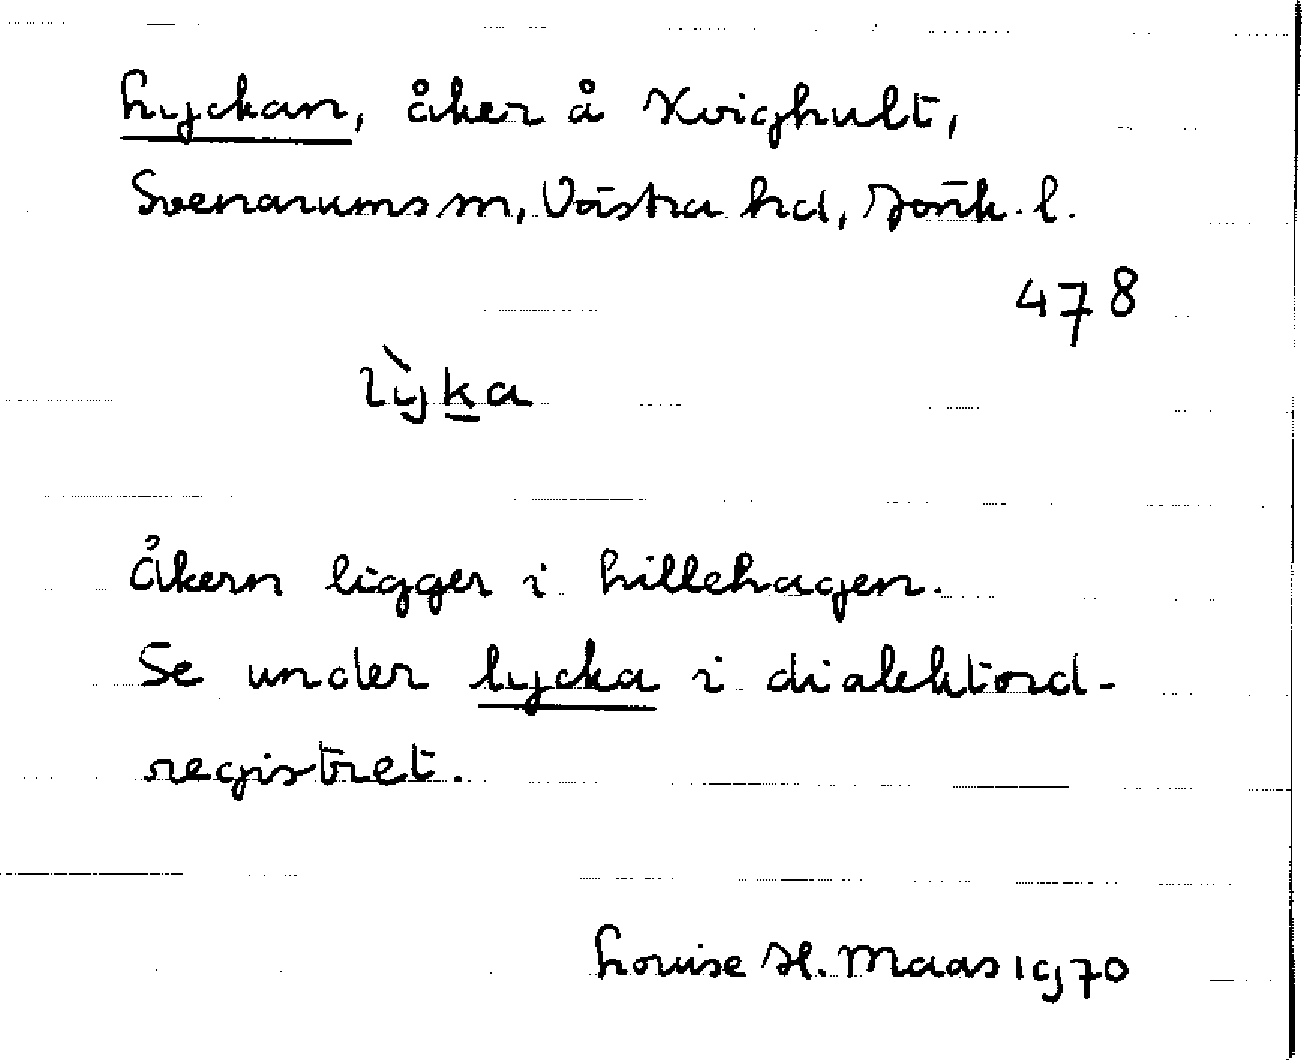 Lyckan, åker å Kvighult,
Svenarums sn, Västra hd, Jönk. l.
478
lỳka
Åkern ligger i Lillehagen.
Se under lycka i dialektord-
registret.
Louise H. Maas 1970